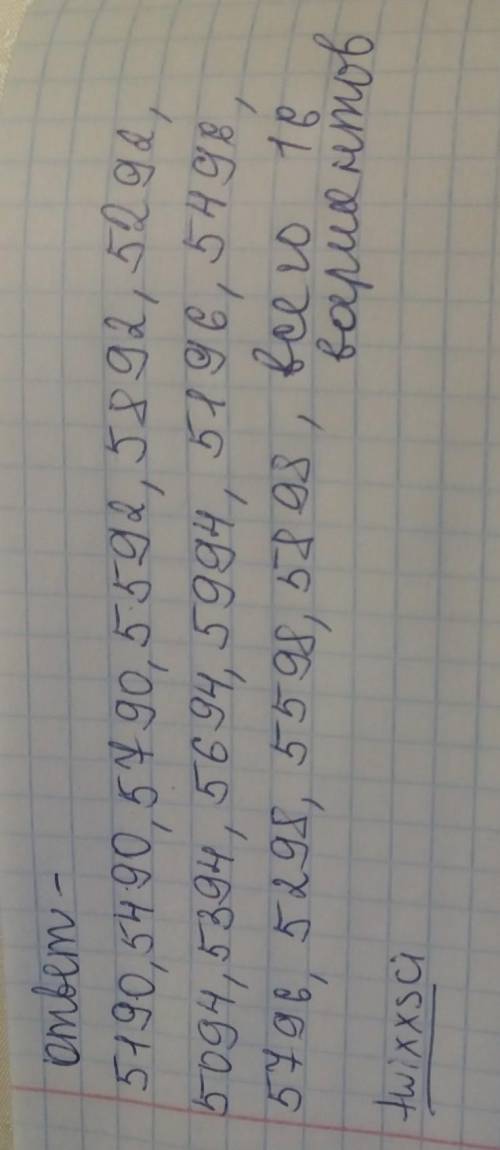 ответ -
5190, 5490, 5790, 5592, 5892, 5292,
5094, 5394, 5694, 5994, 5196, 5496,
5796, 5298, 5598, 5898, всего 16
вариантов
twixxsci